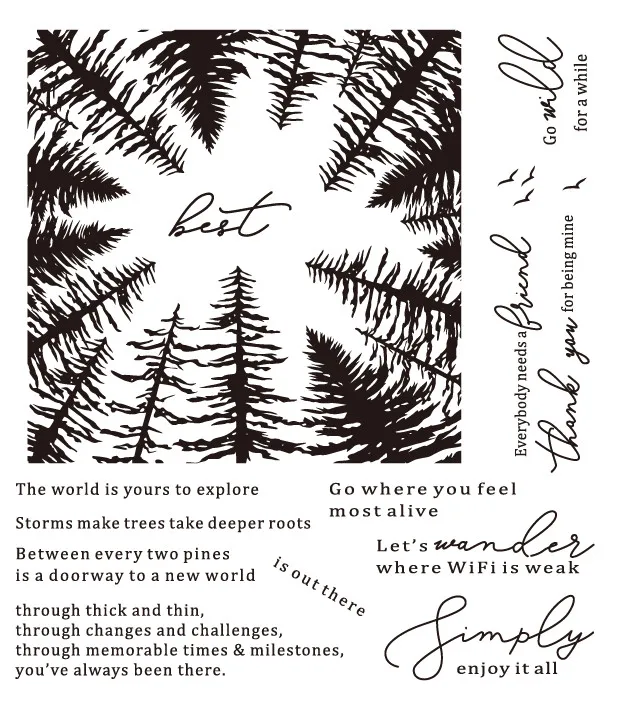 best
Go wild
for a while
Everybody needs a friend
thank you for being mine
The world is yours to explore
Storms make trees take deeper roots
Between every two pines
is a doorway to a new world
is out there
through thick and thin,
through changes and challenges,
through memorable times & milestones,
you've always been there.
Go where you feel
most alive
Let's wander
where WiFi is weak
Simply
enjoy it all